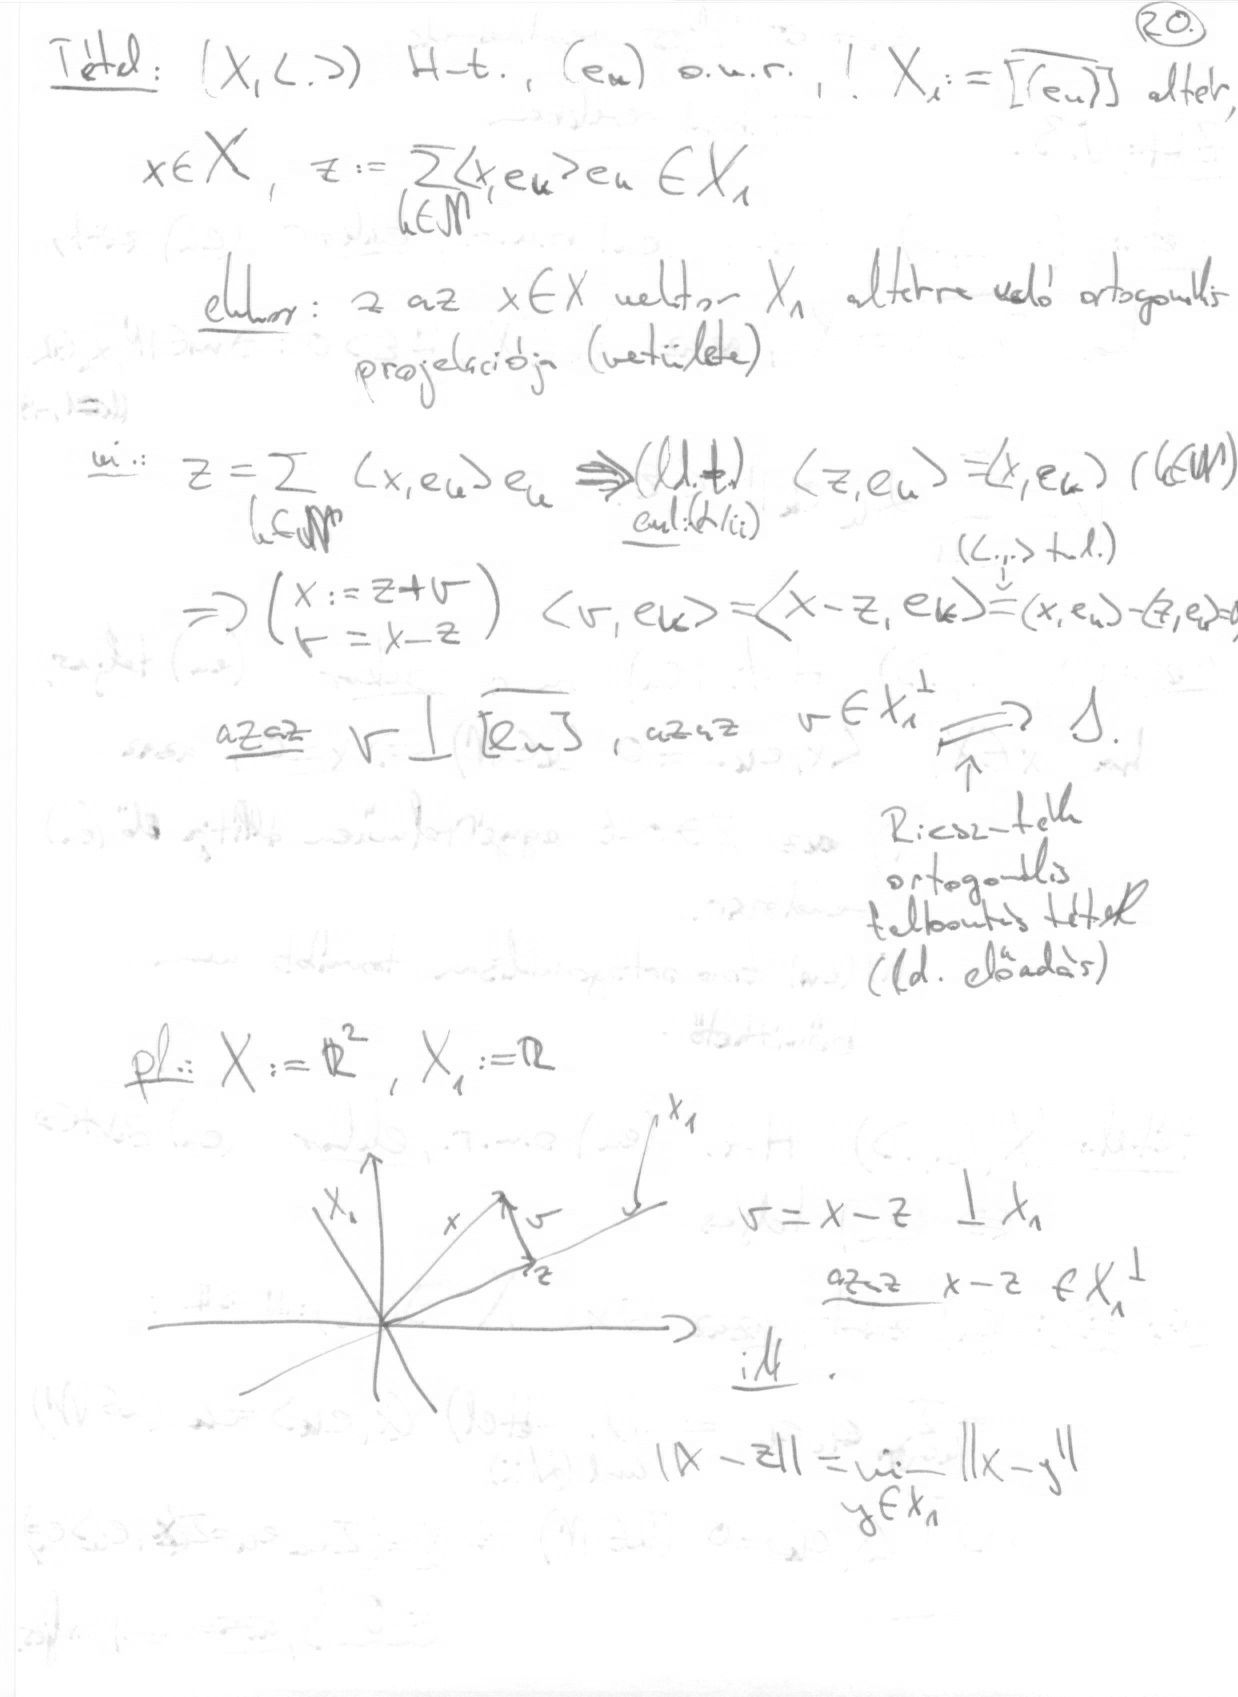 20.
Tétel: (X,<.>) H-t., (en) o.n.r., ! X1 := [(en)] altér,
x∈X, z := Σ <x,en>en ∈ X1
k∈ℕ
ekkor: z az x∈X vektor X1 altérre való ortogonális
projekciója (vetülete)
biz.: z = Σ <x,en>en ⇒ (ld.t.) <z,en> = <x,en> (k∈ℕ)
k∈ℕ
eml:(d/ii)
(<.,.> tul.)
⇒ (x := z+v
v = x-z) <v,ek> = <x-z, ek> = <x,en> - <z,en> = 0,
azaz v ⊥ [en], azaz v ∈ X1⊥ ⇒ ∆.
↑
Riesz-féle
ortogonális
felbontás tétel
(ld. előadás)
pl.: X := ℝ², X1 := ℝ
X1
x v z
v = x-z ⊥ X1
azaz x-z ∈ X1⊥
ill.
||x-z|| = min ||x-y||
y∈X1